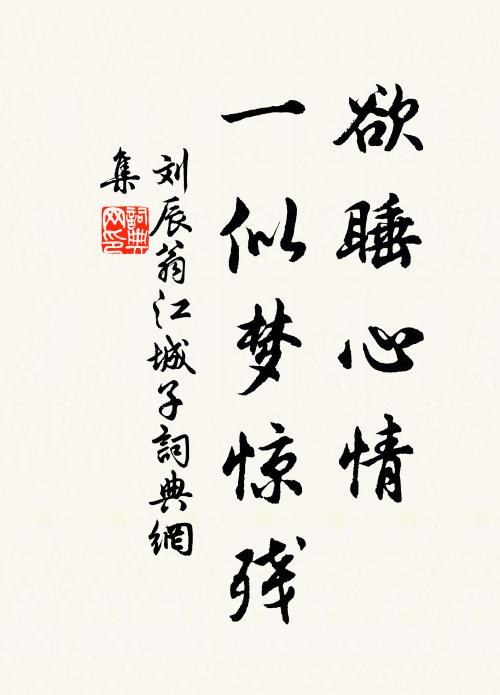 欲睡心情
一似梦惊残
刘辰翁江城子詞典網
集
詞典
网印